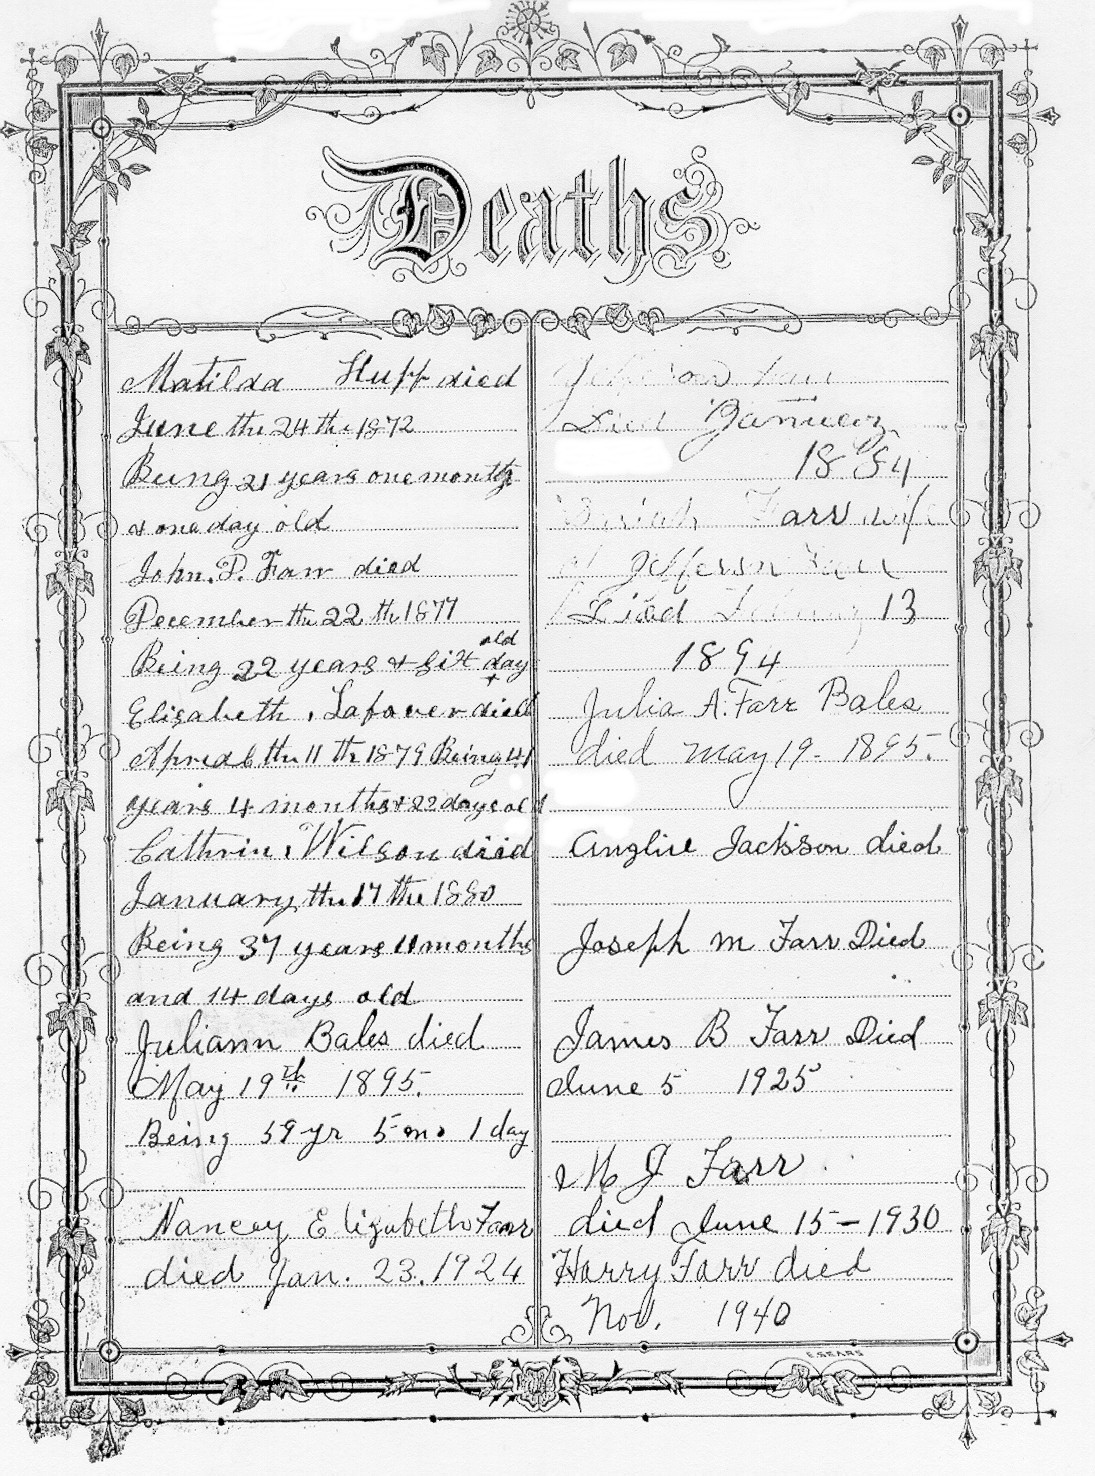 Deaths
Matilda Huff died
June the 24 the 1872
Being 21 years one month
& one day old
John. P. Farr died
December the 22 th 1877
old
Being 22 years & six day
Elisabeth. Lafover died
the 11 th 1879 Being 41
years 4 months & 22 days old
Cathrin. Wilson died
January the 17 the 1880
Being 37 years 11 months
and 14 days old
Juliann Bales died
May 19th 1895.
Being 59 yr 5 mo 1 day
Nancey Elizabeth Farr
died Jan. 23. 1924
Died
1884
Farr wife
of Jefferson Farr
Died 13
1894
Julia A. Farr Bales
died may 19 - 1895.
Angline Jackson died
Joseph M Farr Died
James B Farr Died
June 5 1925
M J Farr
died June 15 - 1930
Harry Farr died
Nov. 1940
E. SEARS